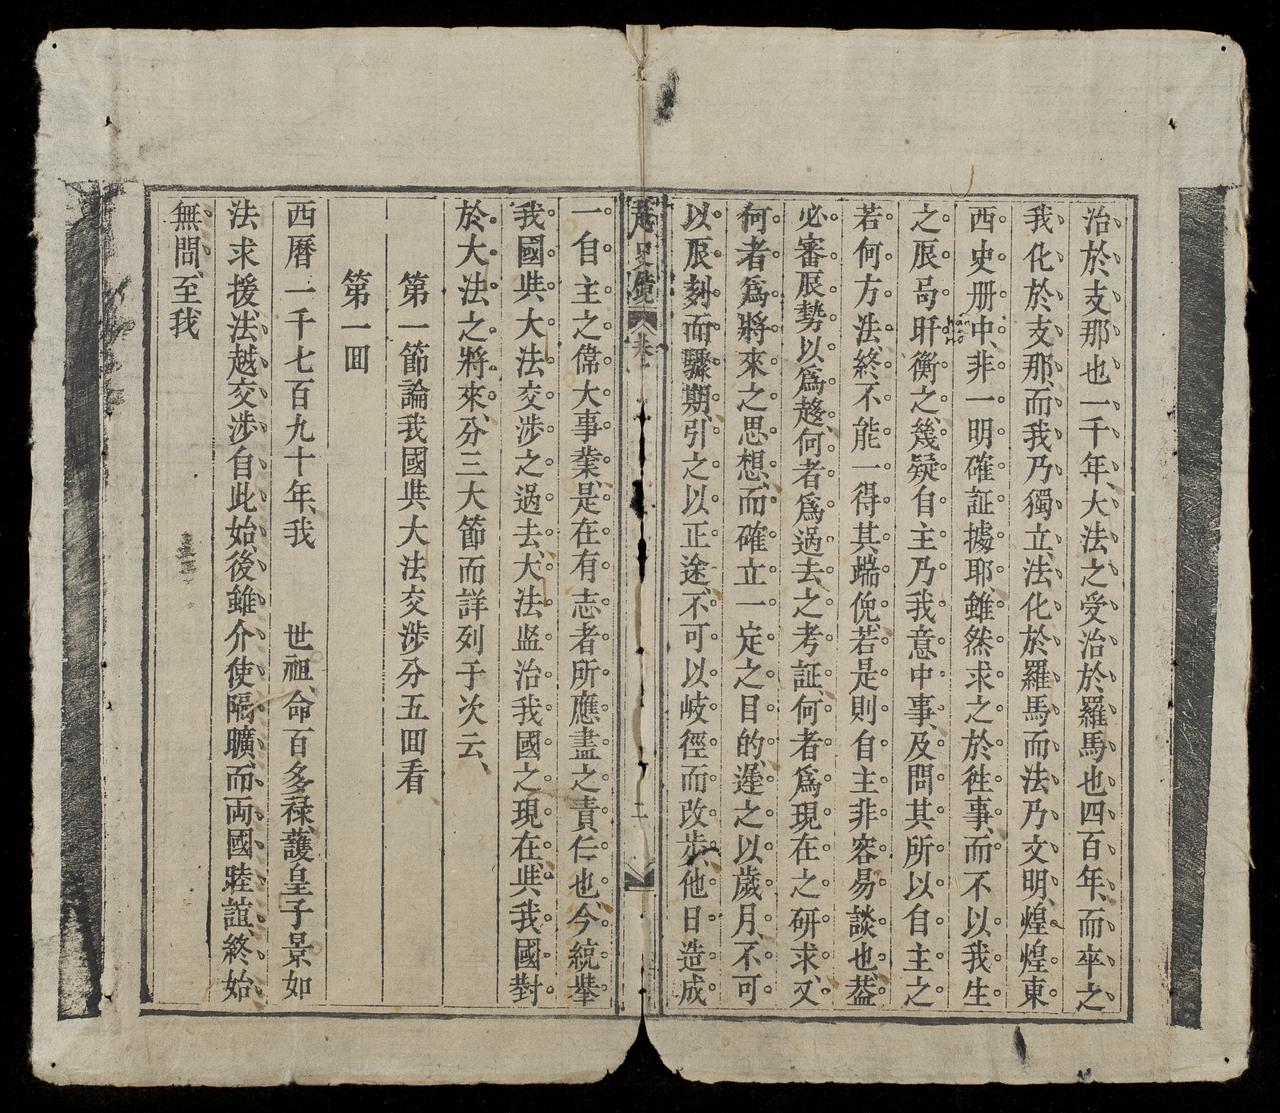 治於支那也一千年、大法之受治於羅馬也四百年、而卒之
我化於支那、而我乃獨立、法化於羅馬而法乃文明、煌煌東
西史册中、非一明確証據耶、雖然求之於徃事、而不以我生
之辰局盱衡之、幾疑自主乃我意中事、及問其所以自主之
若何方法、終不能一得其端倪、若是則自主非容易談也、葢
必審辰勢以爲趍、何者爲過去之考証、何者爲現在之研求、又
何者爲將來之思想、而確立一定之目的、遲之以歲月、不可
以辰刻而驟期、引之以正途、不可以岐徑而改步、他日造成
史鏡 卷 二
一自主之偉大事業、是在有志者所應盡之責任也今統舉
我國與大法交涉之過去、大法監治我國之現在、與我國對
於大法之將來、分三大節而詳列于次云、
第一節論我國與大法交涉分五囬看
第一囬
西曆一千七百九十年、我 世祖、命百多祿、護皇子景如
法求援、法越交涉自此始、後雖介使隔曠、而両國睦誼、終始
無問、至我